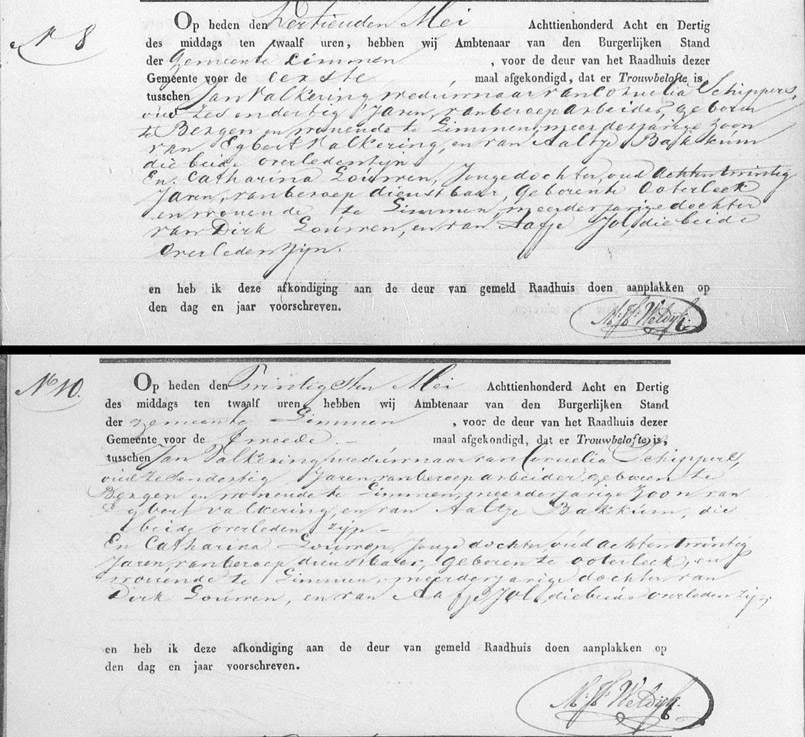 Nº 8
Op heden den Dertienden Mei Achttienhonderd Acht en Dertig
des middags ten twaalf uren, hebben wij Ambtenaar van den Burgerlijken Stand
der gemeente Limmen , voor de deur van het Raadhuis dezer
Gemeente voor de eerste , maal afgekondigd, dat er Trouwbelofte is,
tusschen Jan Valkering weduwnaar van Cornelia Schippers,
oud zes en dertig Jaren, van beroep arbeider, geboren
te Bergen en wonende te Limmen, meerderjarige zoon
van Egbert Valkering, en van Aaltje Bakkúm
die beide overleden zijn
En Catharina Loúwen, Jonge dochter, oud achtentwintig
Jaren, van beroep dienstbaar, geboren te Ooterleek
en wonende te Limmen, meerderjarige dochter
van Dirk Louwen, en van Aafje Jol, die beide
overleden zijn.
en heb ik deze afkondiging aan de deur van gemeld Raadhuis doen aanplakken op
den dag en jaar voorschreven.
Nº 10.
Op heden den Twintigsten Mei Achttienhonderd Acht en Dertig
des middags ten twaalf uren, hebben wij Ambtenaar van den Burgerlijken Stand
der gemeente Limmen , voor de deur van het Raadhuis dezer
Gemeente voor de tweede.- maal afgekondigd, dat er Trouwbelofte is,
tusschen Jan Valkering weduwnaar van Cornelia Schippers,
oud zesendertig Jaren, van beroep arbeider, geboren te
Bergen en wonende te Limmen, meerderjarige zoon van
Egbert Valkering, en van Aaltje Bakkum, die
beide overleden zijn -
En Catharina Loúwen, Jonge dochter, oud achtentwintig
Jaren, van beroep dienstbaar, geboren te Ooterleek, en
wonende te Limmen, meerderjarige dochter van
Dirk Loúwen, en van Aafje Jol, die beide overleden zijn,
en heb ik deze afkondiging aan de deur van gemeld Raadhuis doen aanplakken op
den dag en jaar voorschreven.